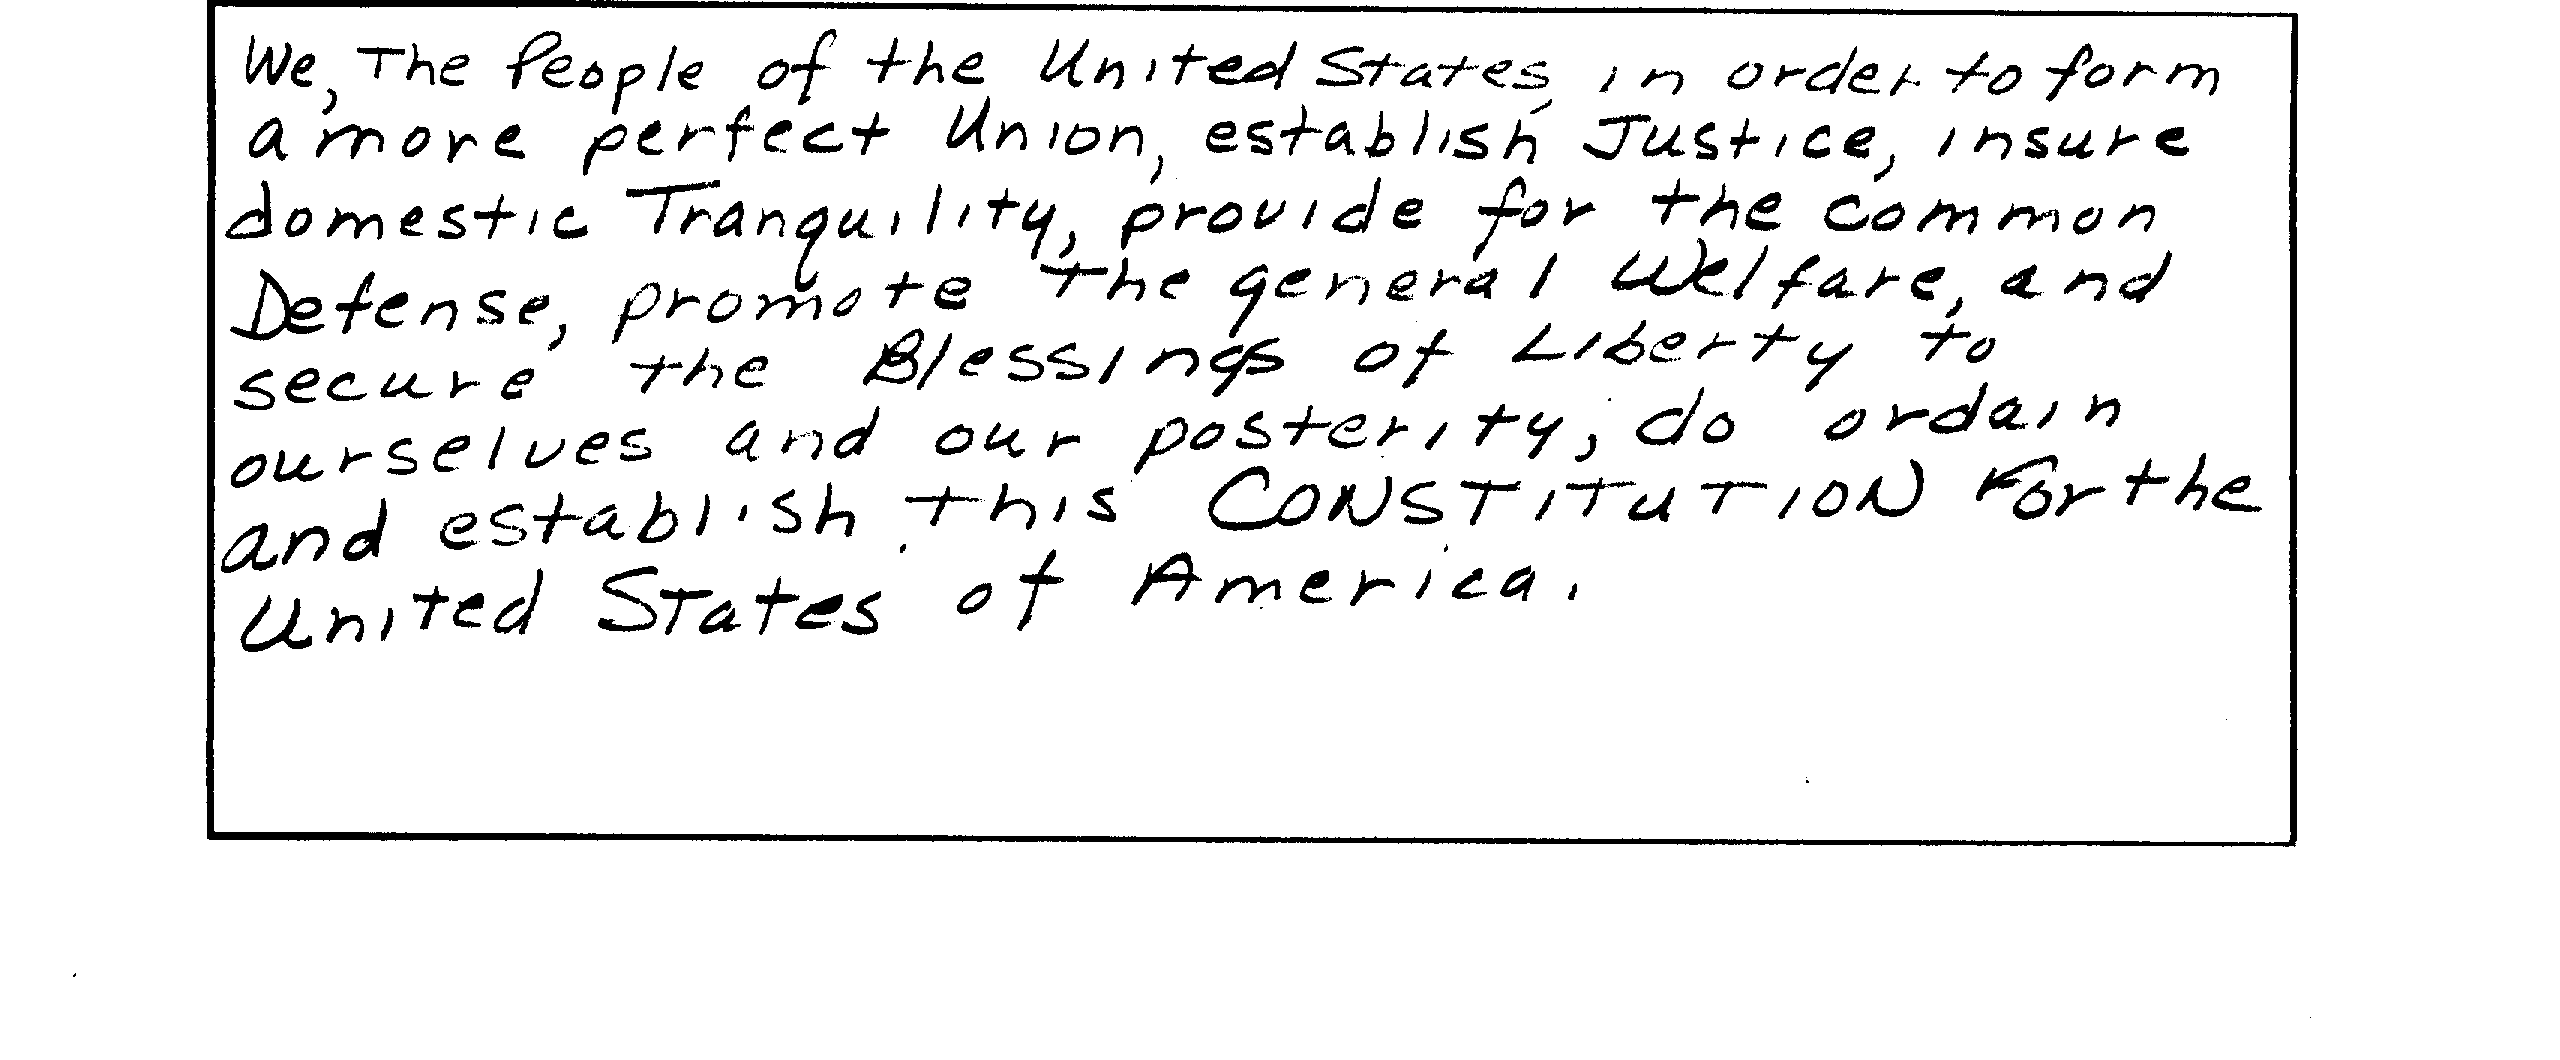 We, The People of the United States, in order to form
a more perfect Union, establish Justice, insure
domestic Tranquility, provide for the common
Defense, promote the general Welfare, and
secure the Blessings of Liberty to
ourselves and our posterity, do ordain
and establish this CONSTITUTION For the
United States of America.